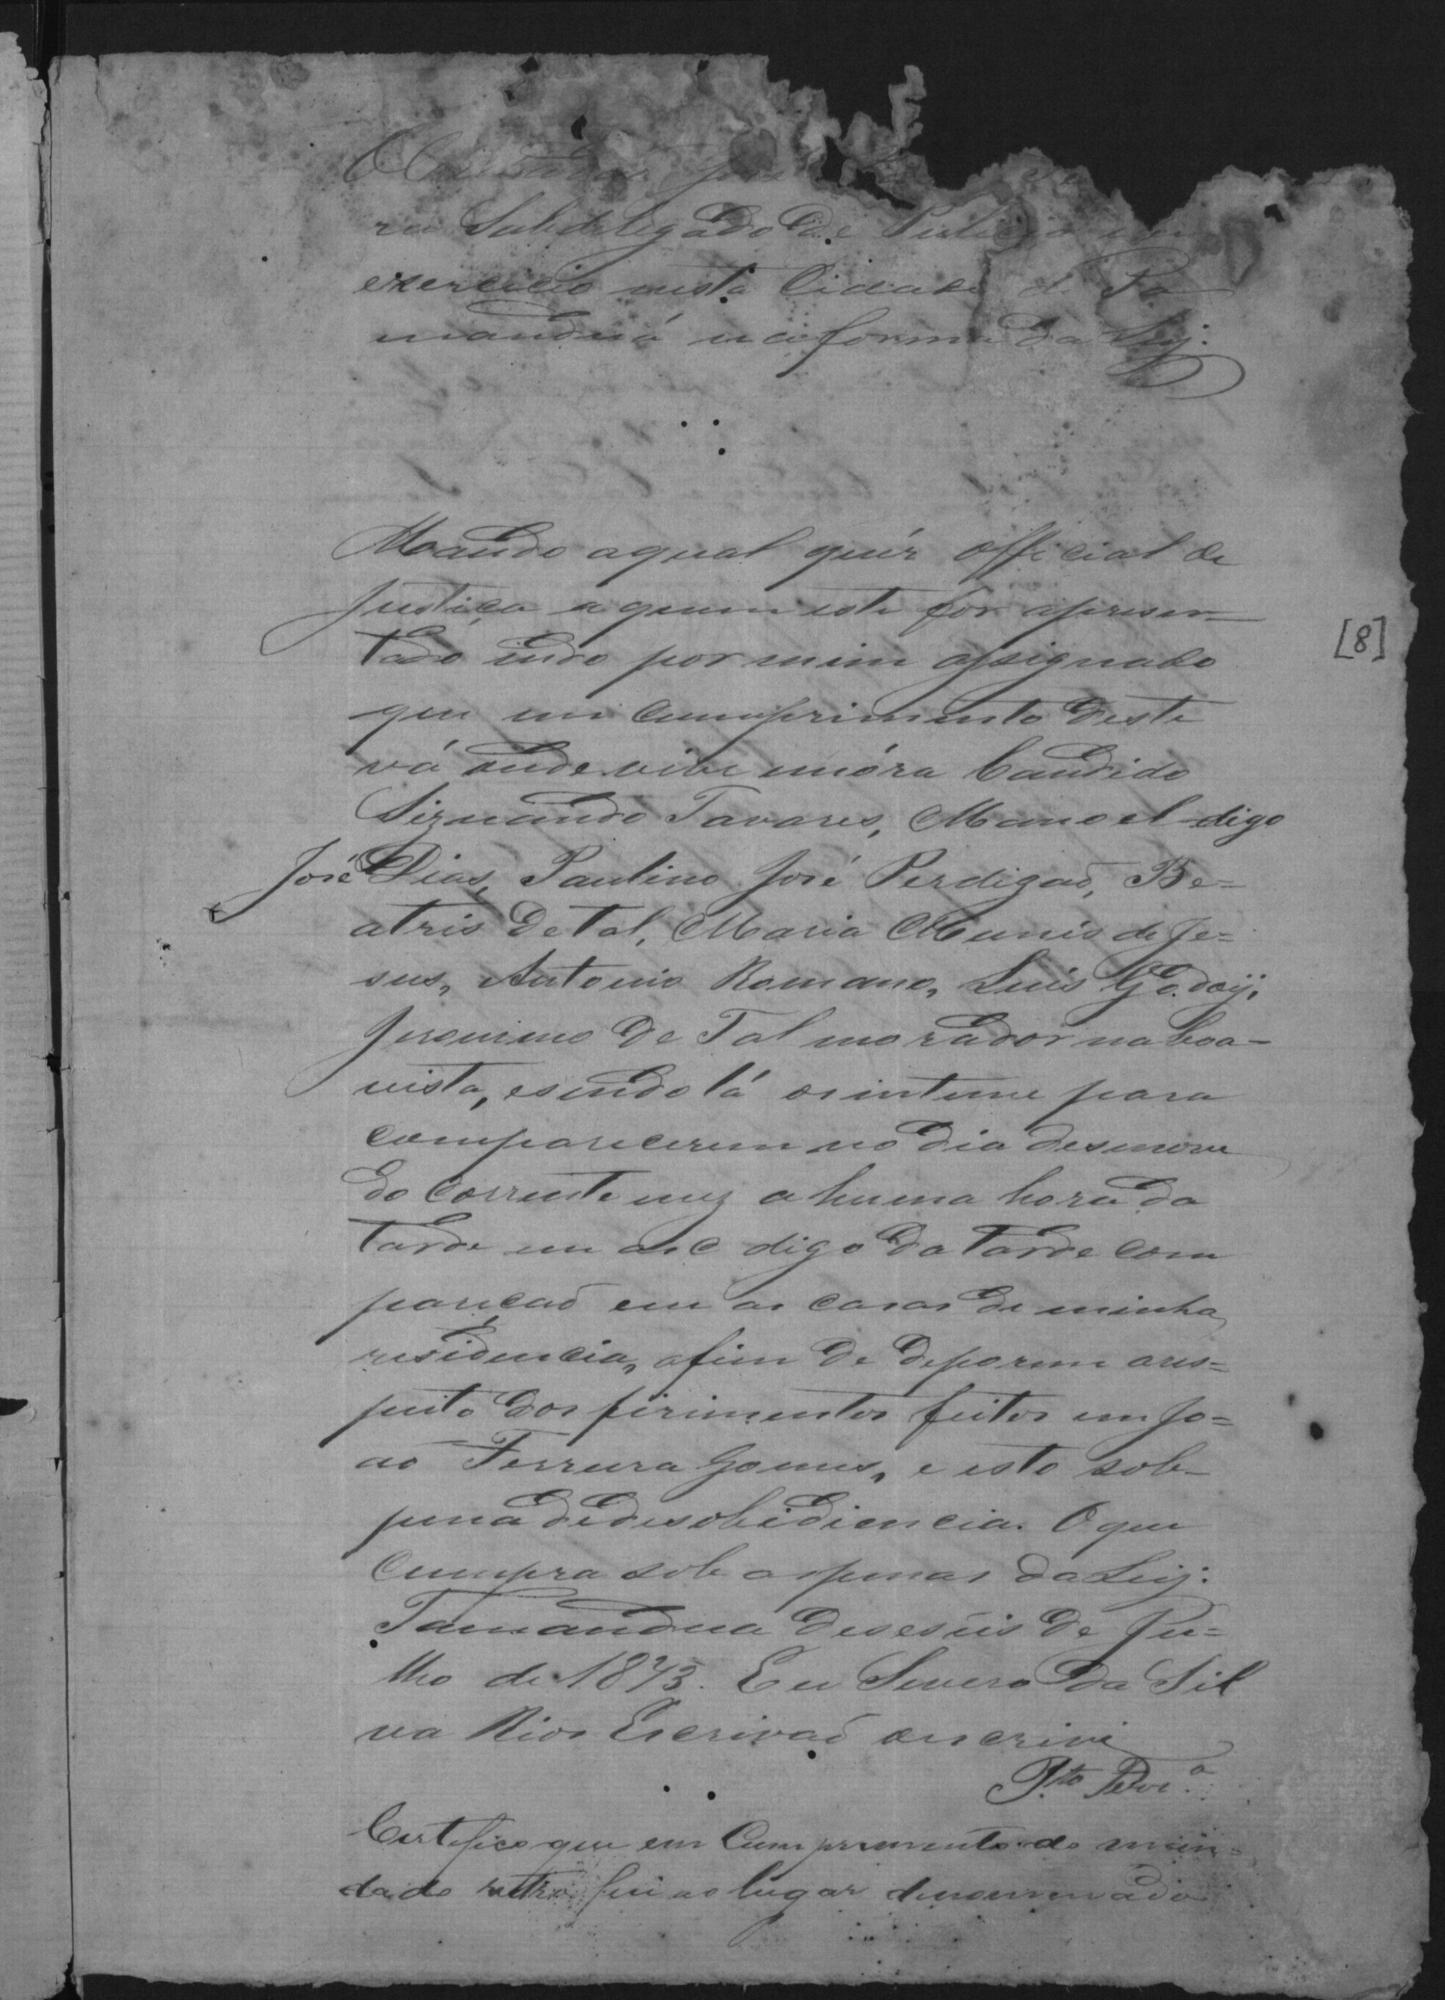 ra Subdelegado de Policia em
exercicio nesta Cidade de Ta
manduá na forma da Ley:
Mando aqual quér official de
Justiça a quem este for apresen-
tado indo por mim assignado
que em cumprimento deste
vá onde vive emóra Candido
Siznando Tavares, Manoel digo
José Dias, Paulino José Perdigaõ, Be=
atris de Tal, Maria Munis de Je=
sus, Antonio Romano, Luis Godoy,
Jeronimo de Tal morador na boa-
vista, esendo lá os intime para
comparecerem no dia desenove
do Corrente mez a huma hora da
tarde em as c digo da tarde com
pareçaõ em as casas de minha
residencia, afim de deporem ares=
peito dos firimentos feitos em Jo=
aõ Ferreira Gomes, e isto sob-
pena dedesobidiencia. O que
Cumpra sob as penas da Ley:
Tamandua deseseis de Ju=
lho de 1873. Eu Severo da Sil
va Rios Escrivaõ oescrivi
Certifico que em Cumprimento do man=
dado retro fui ao lugar denominado
[8]